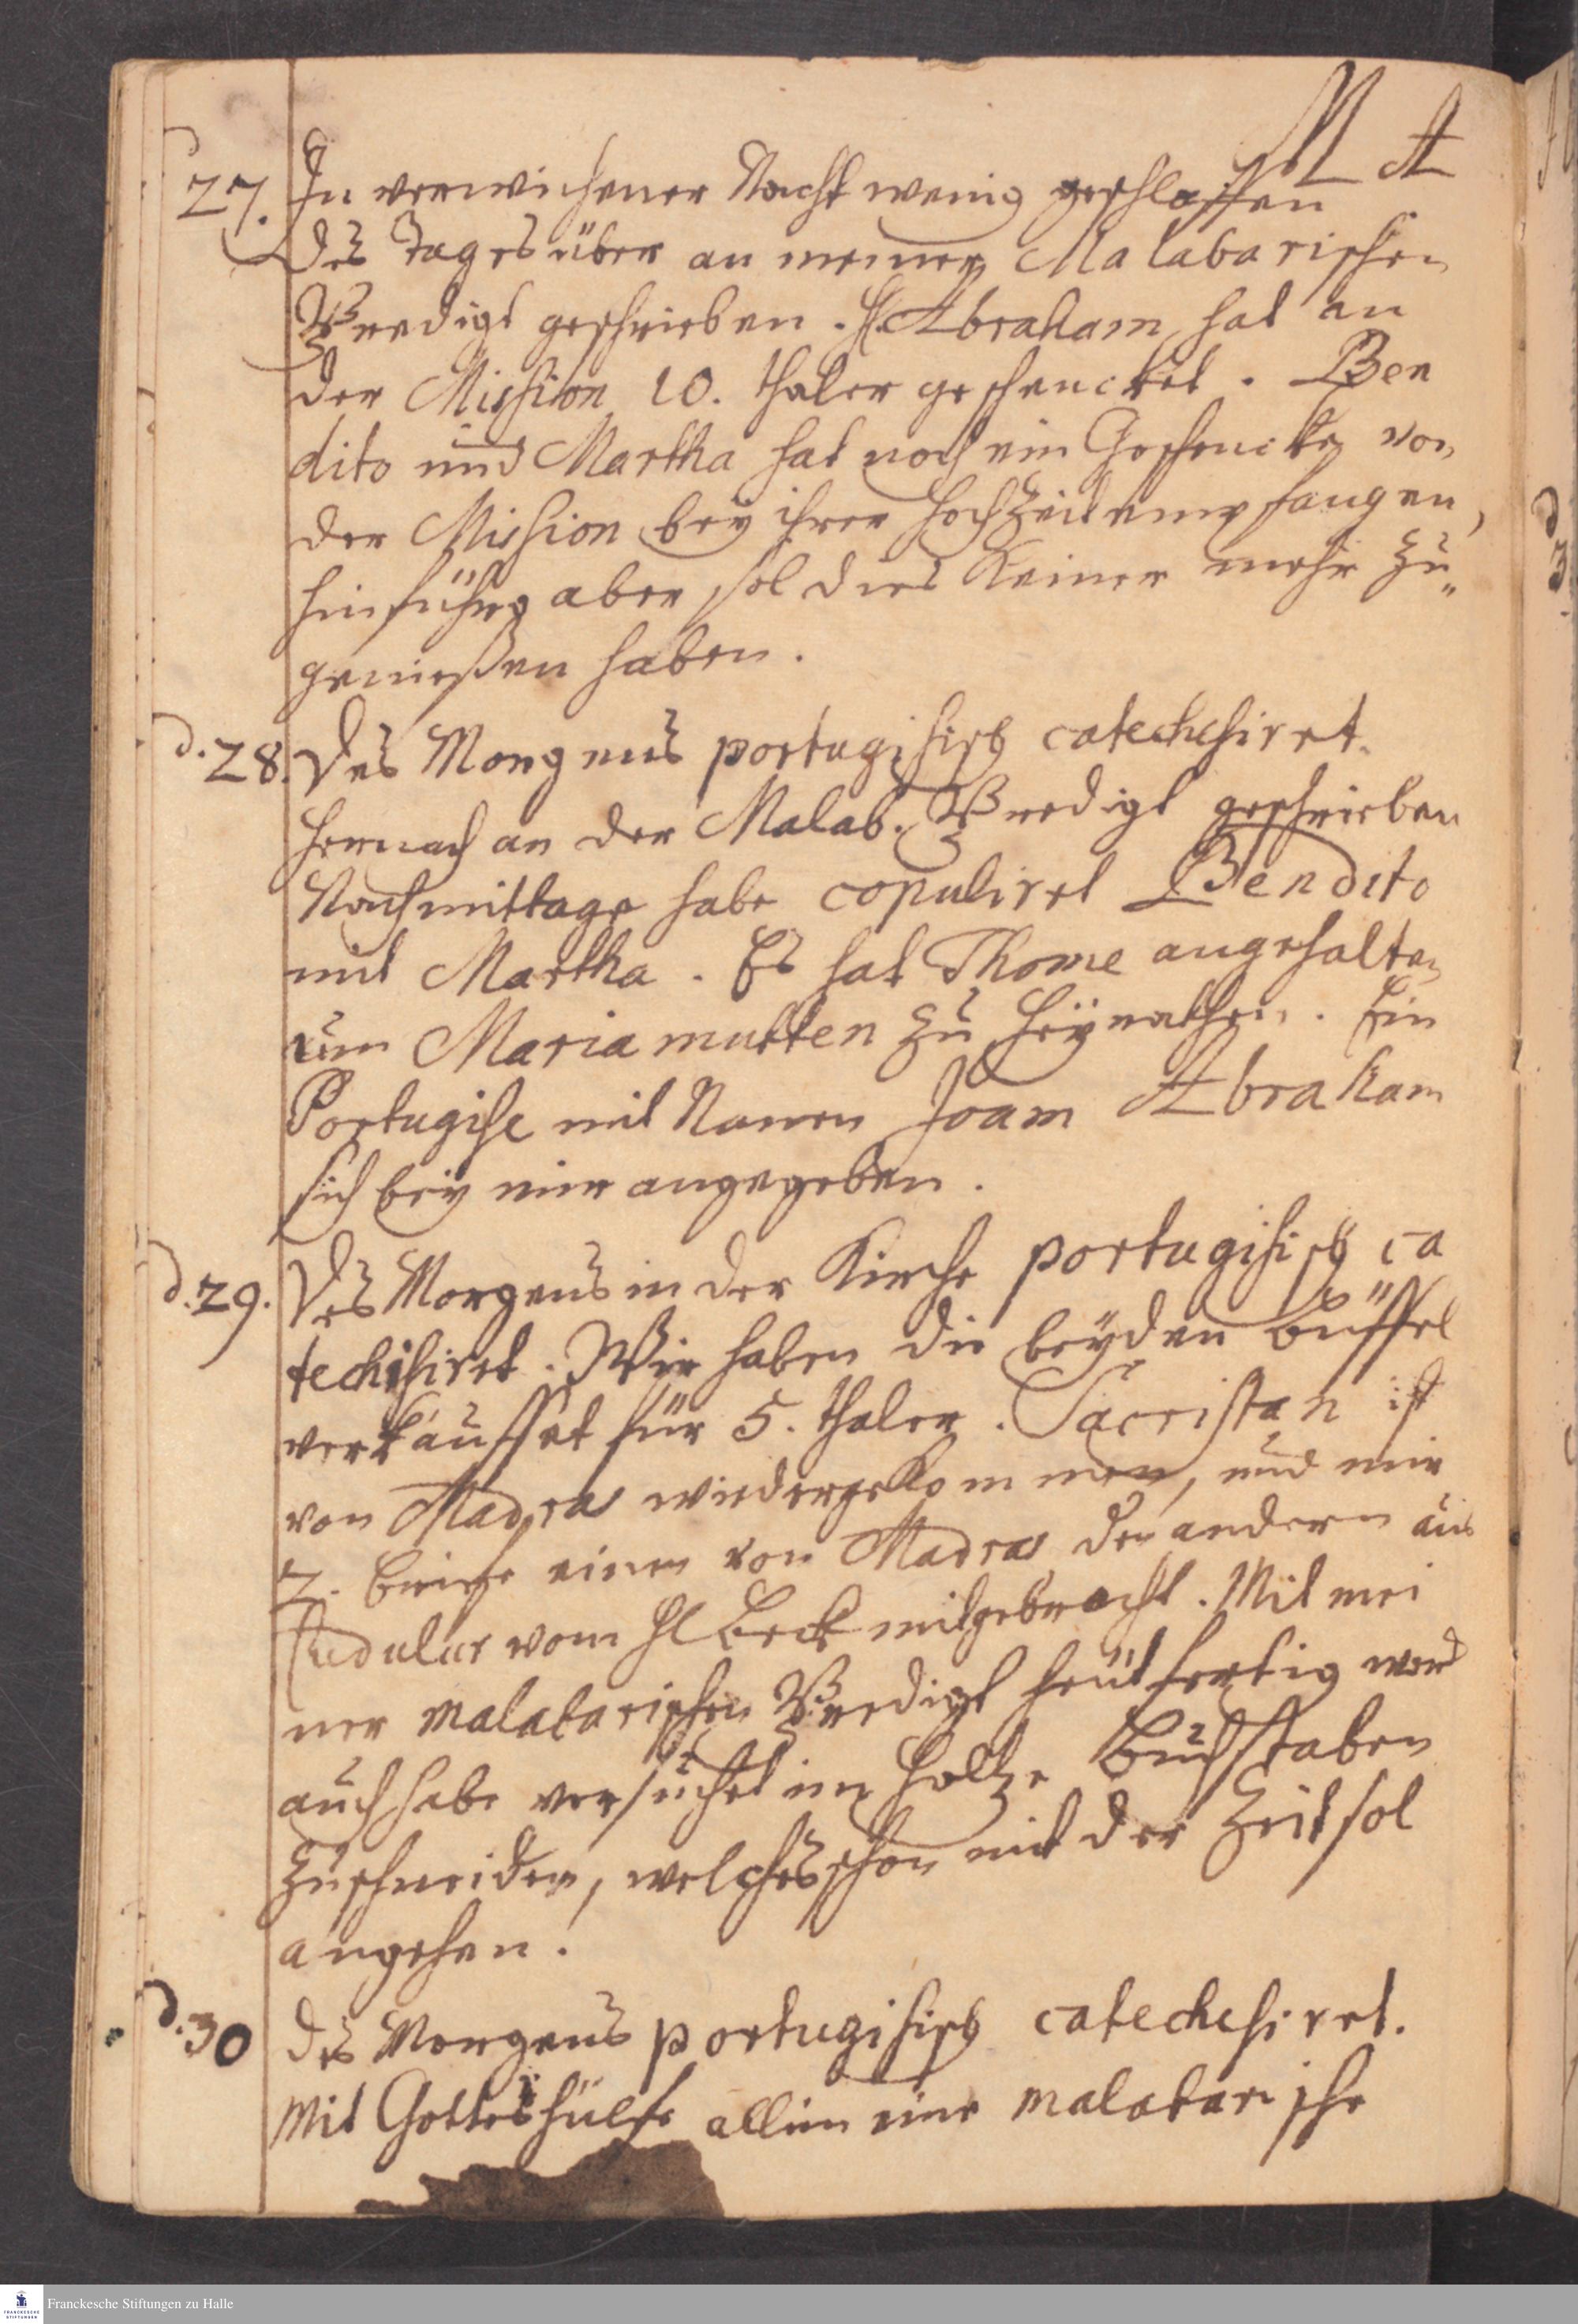 M A
d 27. In verwichener Nacht wenig geschlaffen
Des Tages über an meiner Malabarischen
Predigt geschrieben. H. Abraham hat an
der Mission 10. thaler geschencket. Ben
dito und Martha hat noch ein Geschencke von
der Mission bey ihrer Hochzeit empfangen,
hinführo aber sol dies keiner mehr zu„
genießen haben.
d. 28. Des Morgens portugisisch catechesiret.
Hernach an der Malab. Predigt geschrieben
Nachmittage habe copuliret Bendito
mit Martha. Es hat Thome angehalten
um Maria mutten zu heyrathen. Ein
Portugise mit Namen Joam Abraham
sich bey mir angegeben.
d. 29. Des Morgens in der Kirche portugisisch ca
techisiret. Wir haben die beyden büffel
verkauffet für 5. thaler. Sacristan ist
von Madras wiedergekommen, und mir
2. briefe einen von Madras den andern aus
Cudulur vom H Beck mitgebracht. Mit mei
ner malabarischen Predigt heut fertig word
auch habe versuchet im Holtze Buchstaben
zuschneiden, welches schon mit der Zeit sol
angehen.
d. 30 Des Morgens portugisisch catechesiret.
Mit Gottes hülfe allein eine malabarische
Franckesche Stiftungen zu Halle